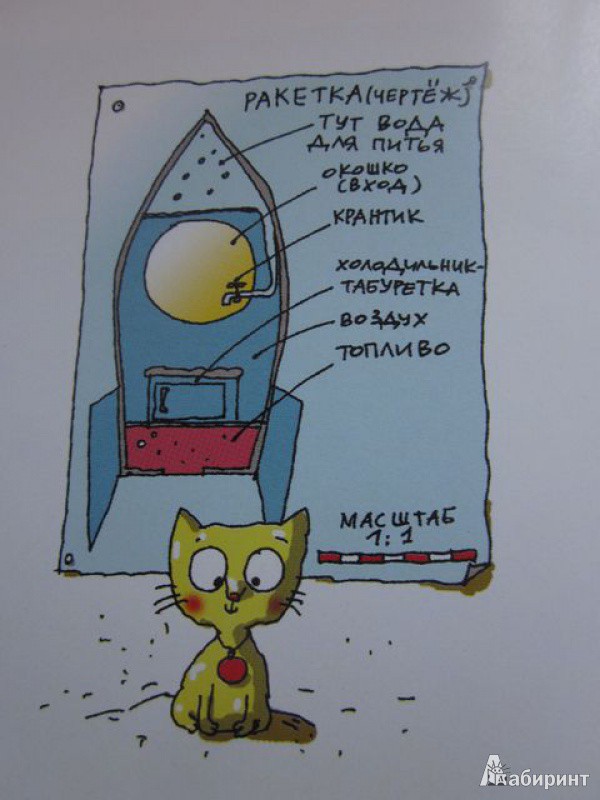 РАКЕТКА(ЧЕРТЁЖ)
ТУТ ВОДА
ДЛЯ ПИТЬЯ
ОКОШКО
(ВХОД)
КРАНТИК
ХОЛОДИЛЬНИК-
ТАБУРЕТКА
ВОЗДУХ
ТОПЛИВО
МАСШТАБ
1:1
Лабиринт